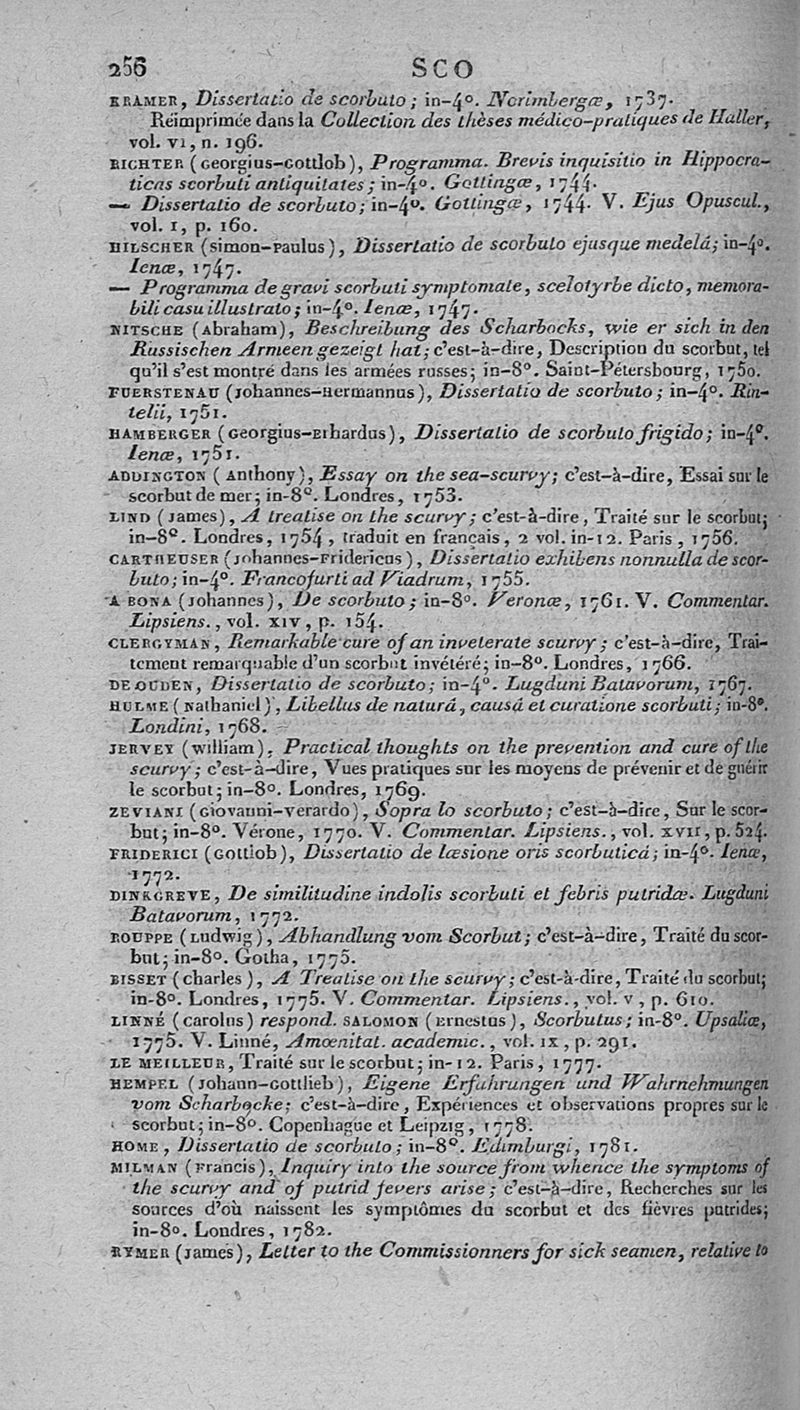 256 SCO
KRAMER, Dissertatio de scorbuto; in-4°. Norimbergæ, 1737.
Réimprimée dans la Collection des thèses médico-pratiques de Haller,
vol. VI, n. 196.
RICHTER (Georgius-Gottlob), Programma. Brevis inquisitio in Hippocra-
ticas scorbuti antiquitates; in-4°. Gottingæ, 1744.
— Dissertatio de scorbuto; in-4°. Gottingæ, 1744. V. Ejus Opuscul.,
vol. I, p. 160.
HILSCHER (Simon-Paulus), Dissertatio de scorbuto ejusque medelâ; in-4°.
Ienæ, 1747.
— Programma de gravi scorbuti symptomate, scelotyrbe dicto, memora-
bili casu illustrato; in-4°. Ienæ, 1747.
NITSCHE (Abraham), Beschreibung des Scharbocks, wie er sich in den
Russischen Armeen gezeigt hat; c'est-à-dire, Description du scorbut, tel
qu'il s'est montré dans les armées russes; in-8°. Saint-Pétersbourg, 1750.
FUERSTENAU (Johannes-Hermannus), Dissertatio de scorbuto; in-4°. Rin-
telii, 1751.
HAMBERGER (Georgius-Erhardus), Dissertatio de scorbuto frigido; in-4°.
Ienæ, 1751.
ADDINGTON (Anthony), Essay on the sea-scurvy; c'est-à-dire, Essai sur le
scorbut de mer; in-8°. Londres, 1753.
LIND (James), A treatise on the scurvy; c'est-à-dire, Traité sur le scorbut;
in-8°. Londres, 1754, traduit en français, 2 vol. in-12. Paris, 1756.
CARTHEUSER (Johannes-Fridericus), Dissertatio exhibens nonnulla de scor-
buto; in-4°. Francofurti ad Viadrum, 1755.
A BONA (Johannes), De scorbuto; in-8°. Veronæ, 1761. V. Commentar.
Lipsiens., vol. XIV, p. 154.
CLERGYMAN, Remarkable cure of an inveterate scurvy; c'est-à-dire, Trai-
tement remarquable d'un scorbut invétéré; in-8°. Londres, 1766.
DE OUDEN, Dissertatio de scorbuto; in-4°. Lugduni Batavorum, 1767.
HULME (Nathaniel), Libellus de naturâ, causâ et curatione scorbuti; in-8°.
Londini, 1768.
JERVEY (William), Practical thoughts on the prevention and cure of the
scurvy; c'est-à-dire, Vues pratiques sur les moyens de prévenir et de guérir
le scorbut; in-8°. Londres, 1769.
ZEVIANI (Giovanni-Verardo), Sopra lo scorbuto; c'est-à-dire, Sur le scor-
but; in-8°. Vérone, 1770. V. Commentar. Lipsiens., vol. XVII, p. 524.
FRIDERICI (Gottlob), Dissertatio de læsione oris scorbuticâ; in-4°. Ienæ,
1772.
DINKGREVE, De similitudine indolis scorbuti et febris putridæ. Lugduni
Batavorum, 1772.
ROUPPE (Ludwig), Abhandlung vom Scorbut; c'est-à-dire, Traité du scor-
but; in-8°. Gotha, 1775.
BISSET (Charles), A Treatise on the scurvy; c'est-à-dire, Traité du scorbut;
in-8°. Londres, 1775. V. Commentar. Lipsiens., vol. V, p. 610.
LINNÉ (Carolus) respond. SALOMON (Ernestus), Scorbutus; in-8°. Upsaliæ,
1775. V. Linné, Amœnitat. academic., vol. IX, p. 291.
LE MEILLEUR, Traité sur le scorbut; in-12. Paris, 1777.
HEMPEL (Johann-Gottlieb), Eigene Erfahrungen und Wahrnehmungen
vom Scharbocke; c'est-à-dire, Expériences et observations propres sur le
scorbut; in-8°. Copenhague et Leipzig, 1778.
HOME, Dissertatio de scorbuto; in-8°. Edimburgi, 1781.
MILMAN (Francis), Inquiry into the source from whence the symptoms of
the scurvy and of putrid fevers arise; c'est-à-dire, Recherches sur les
sources d'où naissent les symptômes du scorbut et des fièvres putrides;
in-8°. Londres, 1782.
RYMER (James), Letter to the Commissionners for sick seamen, relative to